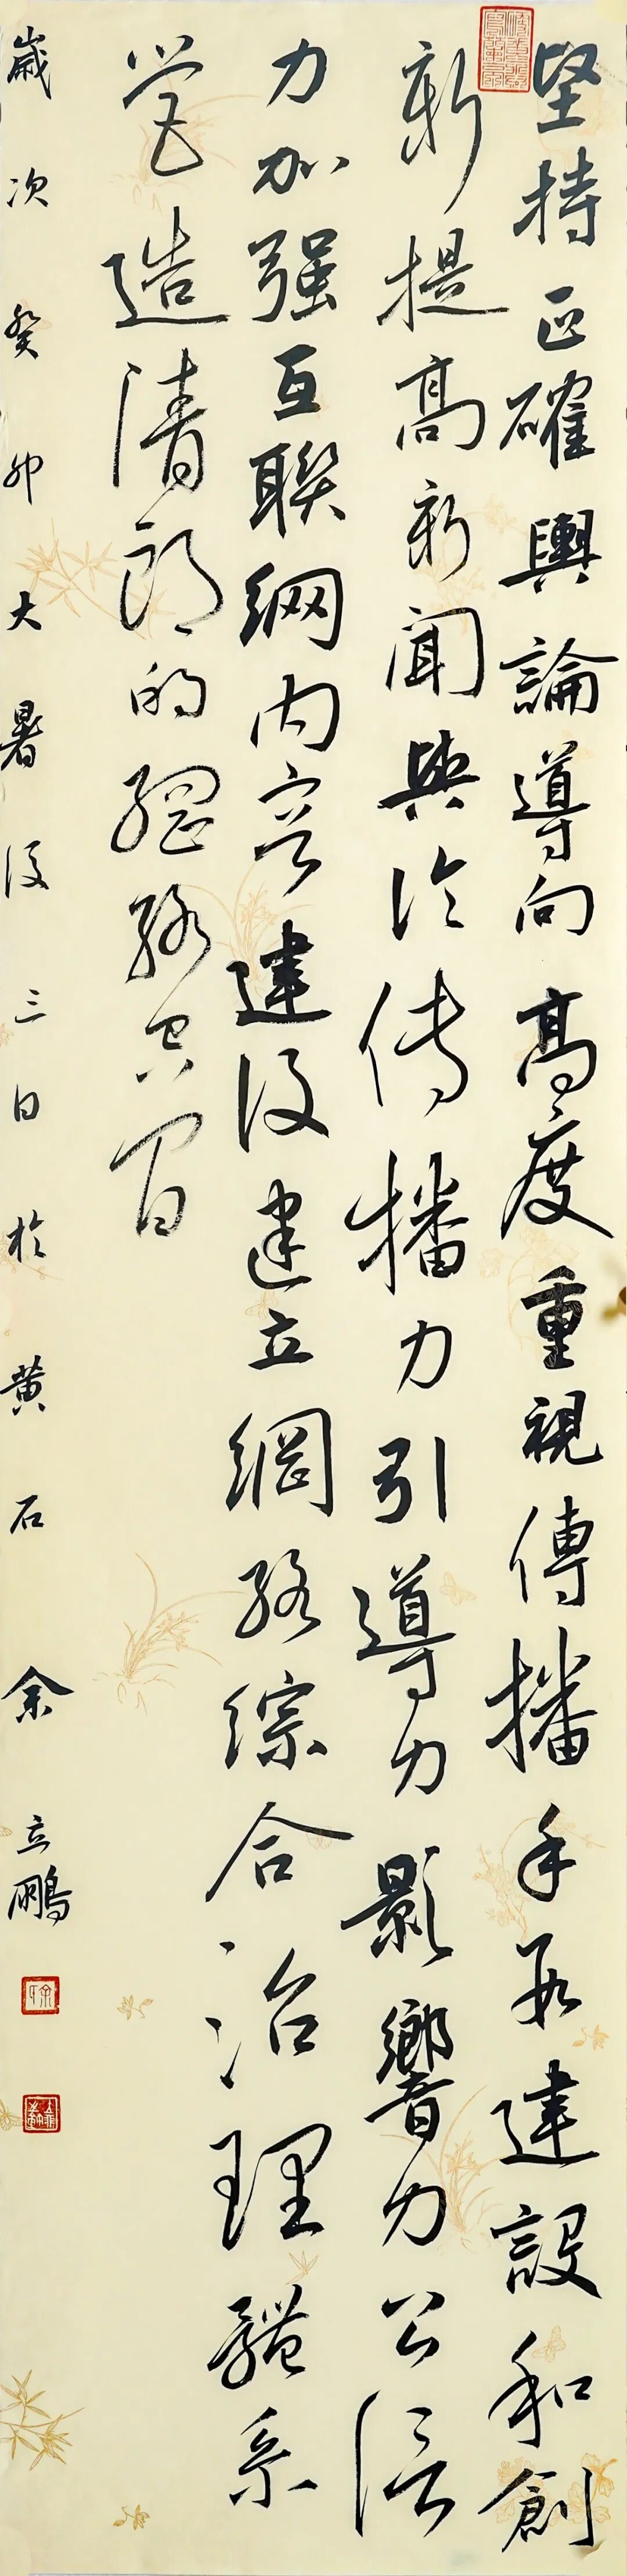 堅持正確輿論導向高度重視傳播手段建設和創
新提高新聞輿论傳播力引導力影響力公信
力加强互聯網内容建设建立網络综合治理體系
営造清朗的網络空间
歲次癸卯大暑後三日於黄石余立鵬